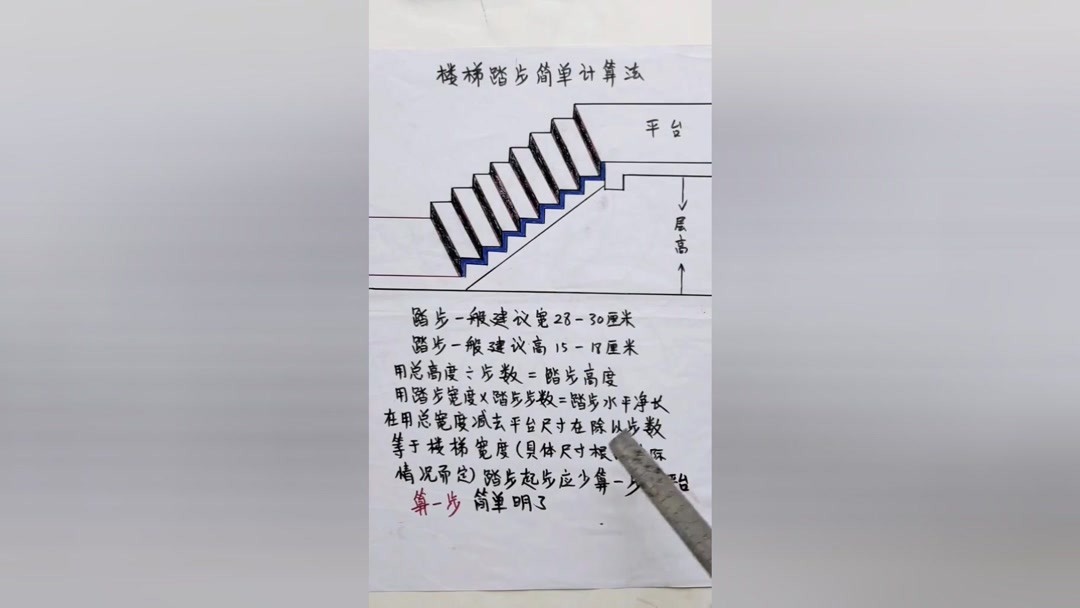 楼梯踏步简单计算法
平台
层高
踏步一般建议宽28-30厘米
踏步一般建议高15-18厘米
用总高度÷步数=踏步高度
用踏步宽度×踏步步数=踏步水平净长
在用总宽度减去平台尺寸在除以步数
等于楼梯宽度(具体尺寸根际
情况而定)踏步起步应少算一步台
算一步 简单明了